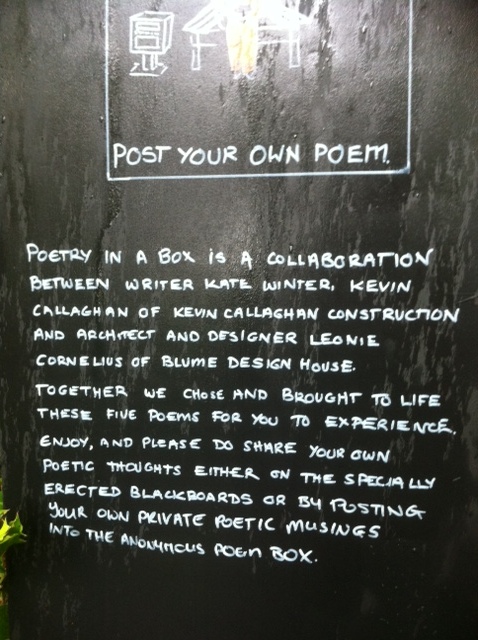 POST YOUR OWN POEM.
POETRY IN A BOX IS A COLLABORATION
BETWEEN WRITER KATE WINTER, KEVIN
CALLAGHAN OF KEVIN CALLAGHAN CONSTRUCTION
AND ARCHITECT AND DESIGNER LEONIE
CORNELIUS OF BLUME DESIGN HOUSE.
TOGETHER WE CHOSE AND BROUGHT TO LIFE
THESE FIVE POEMS FOR YOU TO EXPERIENCE.
ENJOY, AND PLEASE DO SHARE YOUR OWN
POETIC THOUGHTS EITHER ON THE SPECIALLY
ERECTED BLACKBOARDS OR BY POSTING
YOUR OWN PRIVATE POETIC MUSINGS
INTO THE ANONYMOUS POEM BOX.